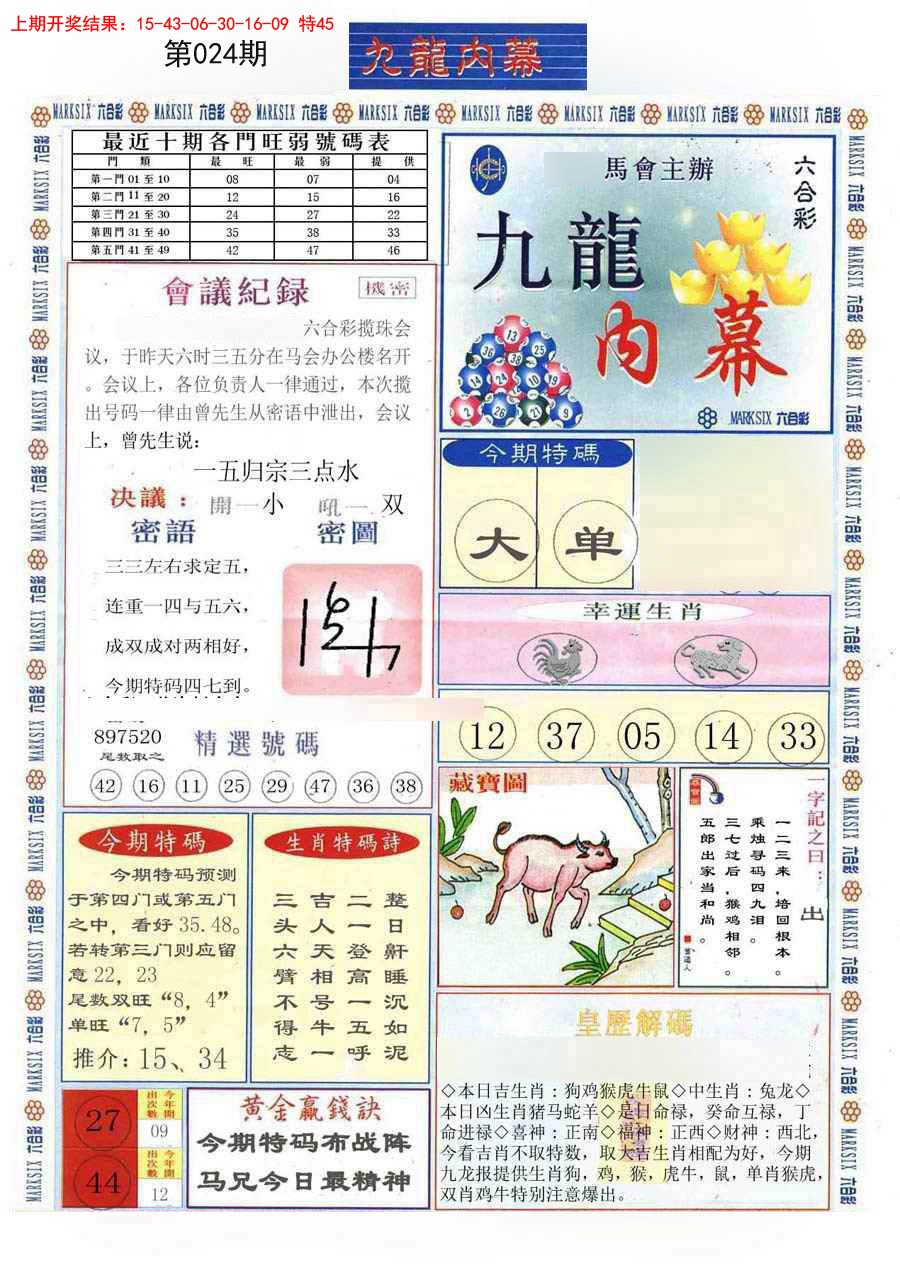 上期开奖结果：15-43-06-30-16-09 特45
第024期
九龍内幕
MARKSIX 六合彩 MARKSIX 六合彩 MARKSIX 六合彩 MARKSIX 六合彩 MARKSIX 六合彩 MARKSIX 六合彩 MARKSIX 六合彩 MARKSIX 六合彩
最近十期各門旺弱號碼表
門類 最旺 最弱 提供
第一門01至10 08 07 04
第二門11至20 12 15 16
第三門21至30 24 27 22
第四門31至40 35 38 33
第五門41至49 42 47 46
馬會主辦
六合彩
九龍
内幕
13
36 38 25
14 24 10 19
2 26 27 9
MARKSIX 六合彩
會議紀録
機密
六合彩揽珠会
议，于昨天六时三五分在马会办公楼名开
。会议上，各位负责人一律通过，本次揽
出号码一律由曾先生从密语中泄出，会议
上，曾先生说：
一五归宗三点水
决議：開一小 吼一双
密語 密圖
三三左右求定五，
连重一四与五六，
成双成对两相好，
今期特码四七到。
897520
尾数取之
精選號碼
42 16 11 25 29 47 36 38
今期特碼
大 单
幸運生肖
12 37 05 14 33
藏寶圖
一字記之曰：出
一二三来，培回根本。
乘烛寻码四九泪。
三七过后，猴鸡相邻。
五郎出家当和尚。
今期特碼
今期特码预测
于第四门或第五门
之中，看好35.48。
若转第三门则应留
意22，23
尾数双旺“8，4”
单旺“7，5”
推介：15、34
生肖特碼詩
整日鼾睡沉如泥
二一登高一五呼
吉人天相号牛一
三头六臂不得志
27
今年開出次數
09
44
今年開出次數
12
黄金贏錢訣
今期特码布战阵
马兄今日最精神
皇歷解碼
◇本日吉生肖：狗鸡猴虎牛鼠◇中生肖：兔龙◇
本日凶生肖猪马蛇羊◇是日命禄，癸命互禄，丁
命进禄◇喜神：正南◇福神：正西◇财神：西北，
今看吉肖不取特数，取大吉生肖相配为好，今期
九龙报提供生肖狗，鸡，猴，虎牛，鼠，单肖猴虎，
双肖鸡牛特别注意爆出。